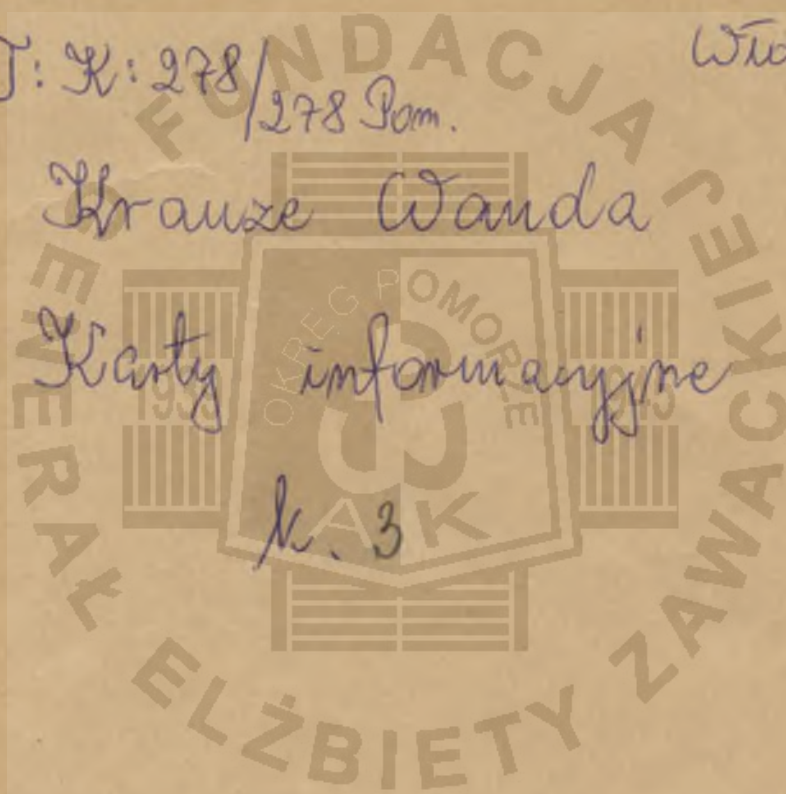 T: K: 278/278 Pom.
Krauze Wanda
Karty informacyjne
k. 3
FUNDACJA GENERAŁ ELŻBIETY ZAWACKIEJ
OKRĘG POMORZE
AK